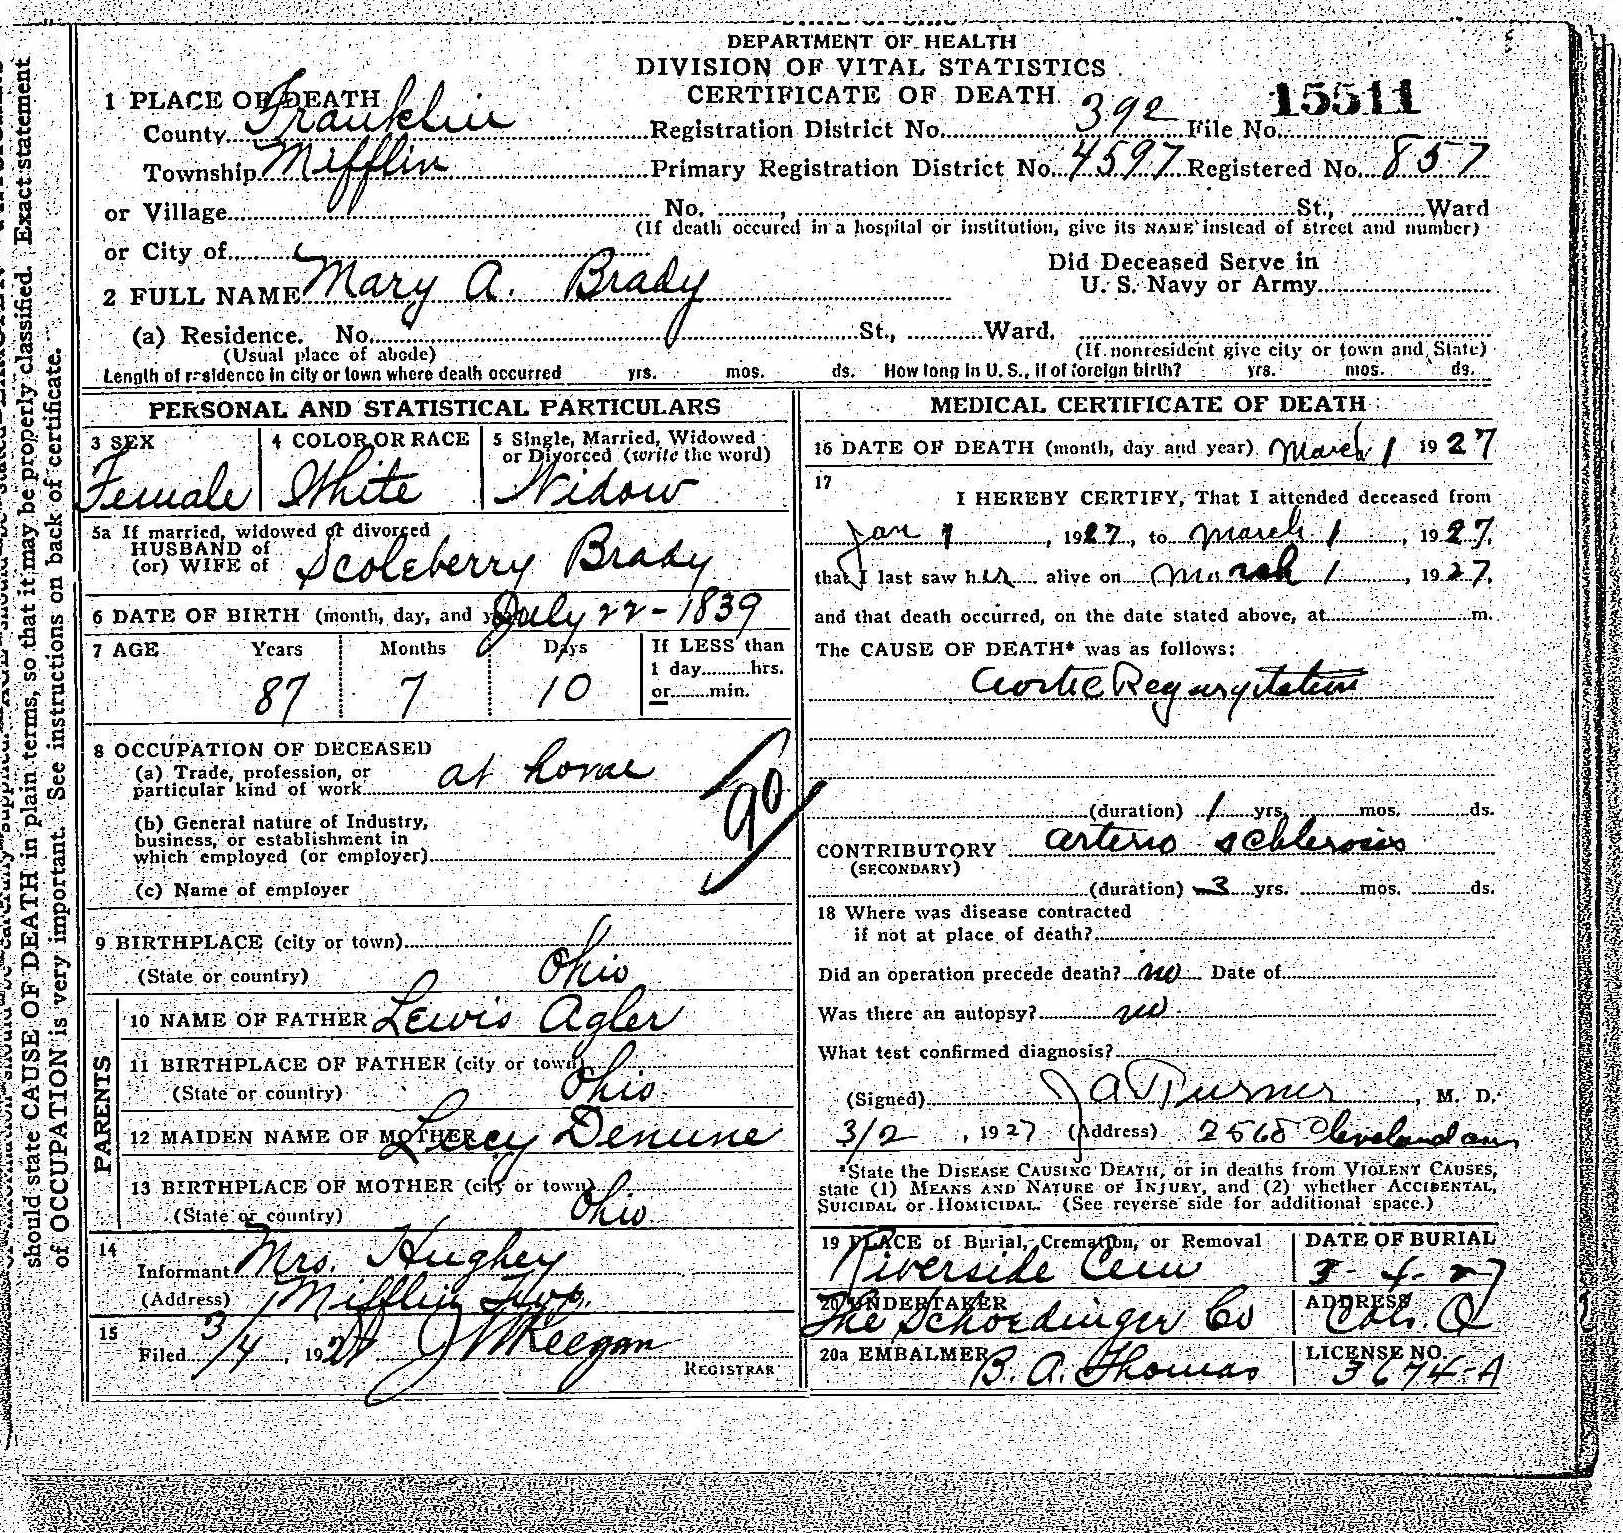 DEPARTMENT OF HEALTH
DIVISION OF VITAL STATISTICS
CERTIFICATE OF DEATH
15511
1 PLACE OF DEATH
County Franklin Registration District No. 392 File No.
Township Mifflin Primary Registration District No. 4597 Registered No. 857
or Village No. , St., Ward
(If death occured in a hospital or institution, give its NAME instead of street and number)
or City of
Did Deceased Serve in
U. S. Navy or Army
2 FULL NAME Mary A. Brady
(a) Residence. No. St., Ward.
(Usual place of abode) (If nonresident give city or town and State)
Length of residence in city or town where death occurred yrs. mos. ds. How long in U. S., if of foreign birth? yrs. mos. ds.
PERSONAL AND STATISTICAL PARTICULARS
3 SEX 4 COLOR OR RACE 5 Single, Married, Widowed
or Divorced (write the word)
Female White Widow
5a If married, widowed or divorced
HUSBAND of
(or) WIFE of Scoleberry Brady
6 DATE OF BIRTH (month, day, and July 22 - 1839
7 AGE Years Months Days If LESS than
1 day hrs.
or min.
87 7 10
8 OCCUPATION OF DECEASED
(a) Trade, profession, or
particular kind of work at home
90
(b) General nature of Industry,
business, or establishment in
which employed (or employer)
(c) Name of employer
9 BIRTHPLACE (city or town)
(State or country) Ohio
PARENTS
10 NAME OF FATHER Lewis Agler
11 BIRTHPLACE OF FATHER (city or town)
(State or country) Ohio
12 MAIDEN NAME OF MOTHER Lucy Denune
13 BIRTHPLACE OF MOTHER (city or town)
(State or country) Ohio
14
Informant Mrs. Hughey
(Address) Mifflin Twp.
15
Filed 3/4, 1927 J W Keegan
REGISTRAR
MEDICAL CERTIFICATE OF DEATH
16 DATE OF DEATH (month, day and year) March 1 1927
17
I HEREBY CERTIFY, That I attended deceased from
Jan 1, 1927, to March 1, 1927,
that I last saw her alive on March 1, 1927,
and that death occurred, on the date stated above, at m.
The CAUSE OF DEATH* was as follows:
Aortic Regurgitation
(duration) 1 yrs. mos. ds.
CONTRIBUTORY arterio schlerosis
(SECONDARY)
(duration) 3 yrs. mos. ds.
18 Where was disease contracted
if not at place of death?
Did an operation precede death? no Date of
Was there an autopsy? no
What test confirmed diagnosis?
(Signed) J A Turner, M. D.
3/2, 1927 (Address) 2568 Cleveland ave
*State the DISEASE CAUSING DEATH, or in deaths from VIOLENT CAUSES,
state (1) MEANS AND NATURE OF INJURY, and (2) whether ACCIDENTAL,
SUICIDAL or HOMICIDAL. (See reverse side for additional space.)
19 PLACE of Burial, Cremation, or Removal DATE OF BURIAL
Riverside Cem 3-4-27
20 UNDERTAKER ADDRESS
The Schoedinger Co Cols. O
20a EMBALMER LICENSE NO.
B. A. Thomas 3674-A
should state CAUSE OF DEATH in plain terms, so that it may be properly classified. Exact statement
of OCCUPATION is very important. See instructions on back of certificate.